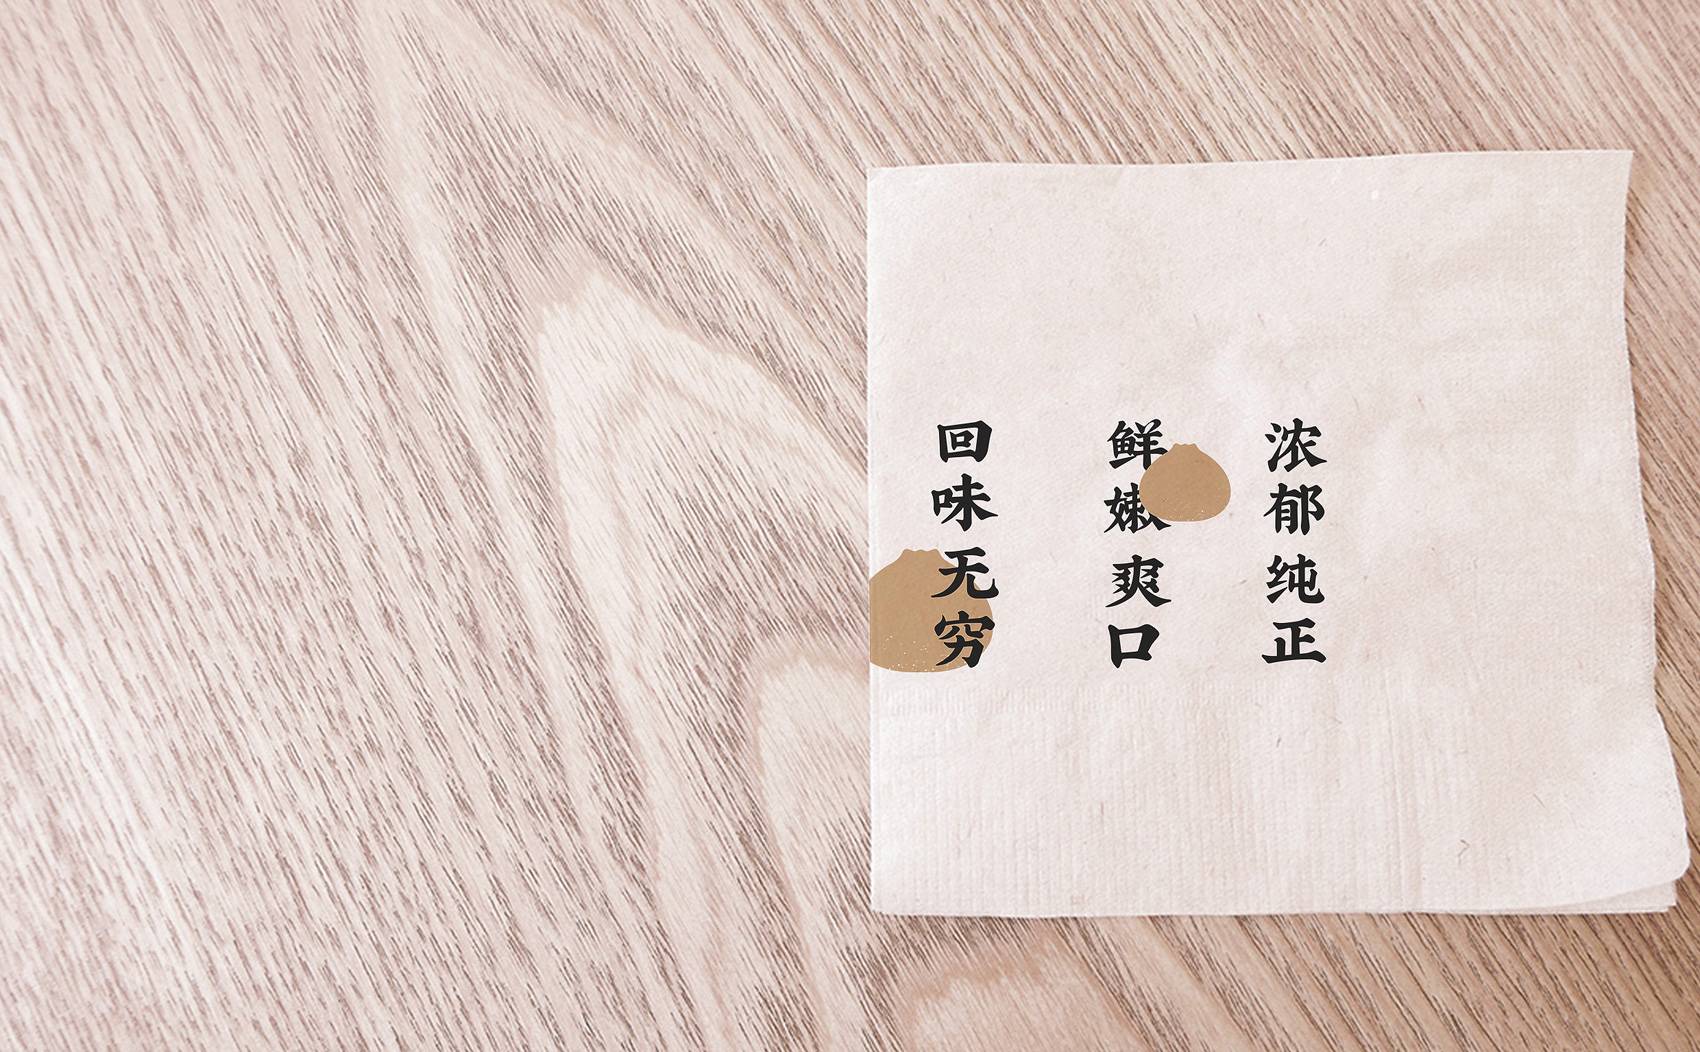 浓郁纯正
鲜嫩爽口
回味无穷